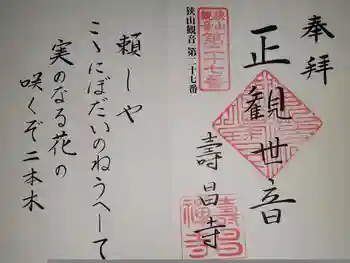 奉拝
正観世音
壽昌寺
狭山観音第二十七番
狭山観音 第二十七番
頼しや
こゝにぼだいのねうへして
実のなる花の
咲くぞ二本木